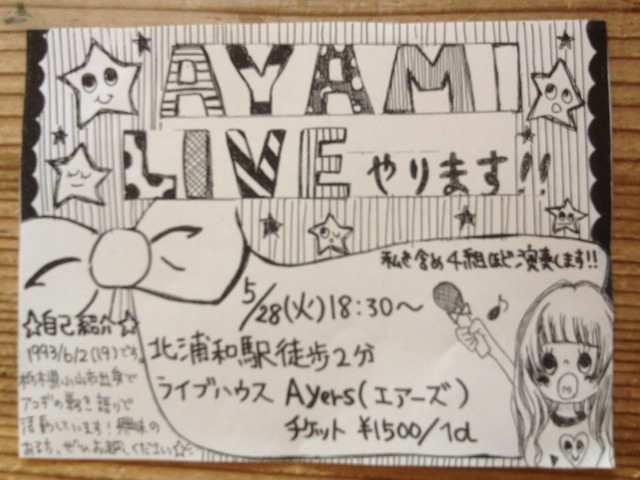 AYAMI
LIVE やります!!
私を含め4組ほど演奏します!!
5/28(火)18:30〜
北浦和駅徒歩2分
ライブハウス Ayers(エアーズ)
チケット ¥1500/1d
☆自己紹介☆
1993/6/2(19)です。
栃木県小山市出身で
アコギの弾き語りで
活動しています!興味の
ある方、ぜひお越しください☆